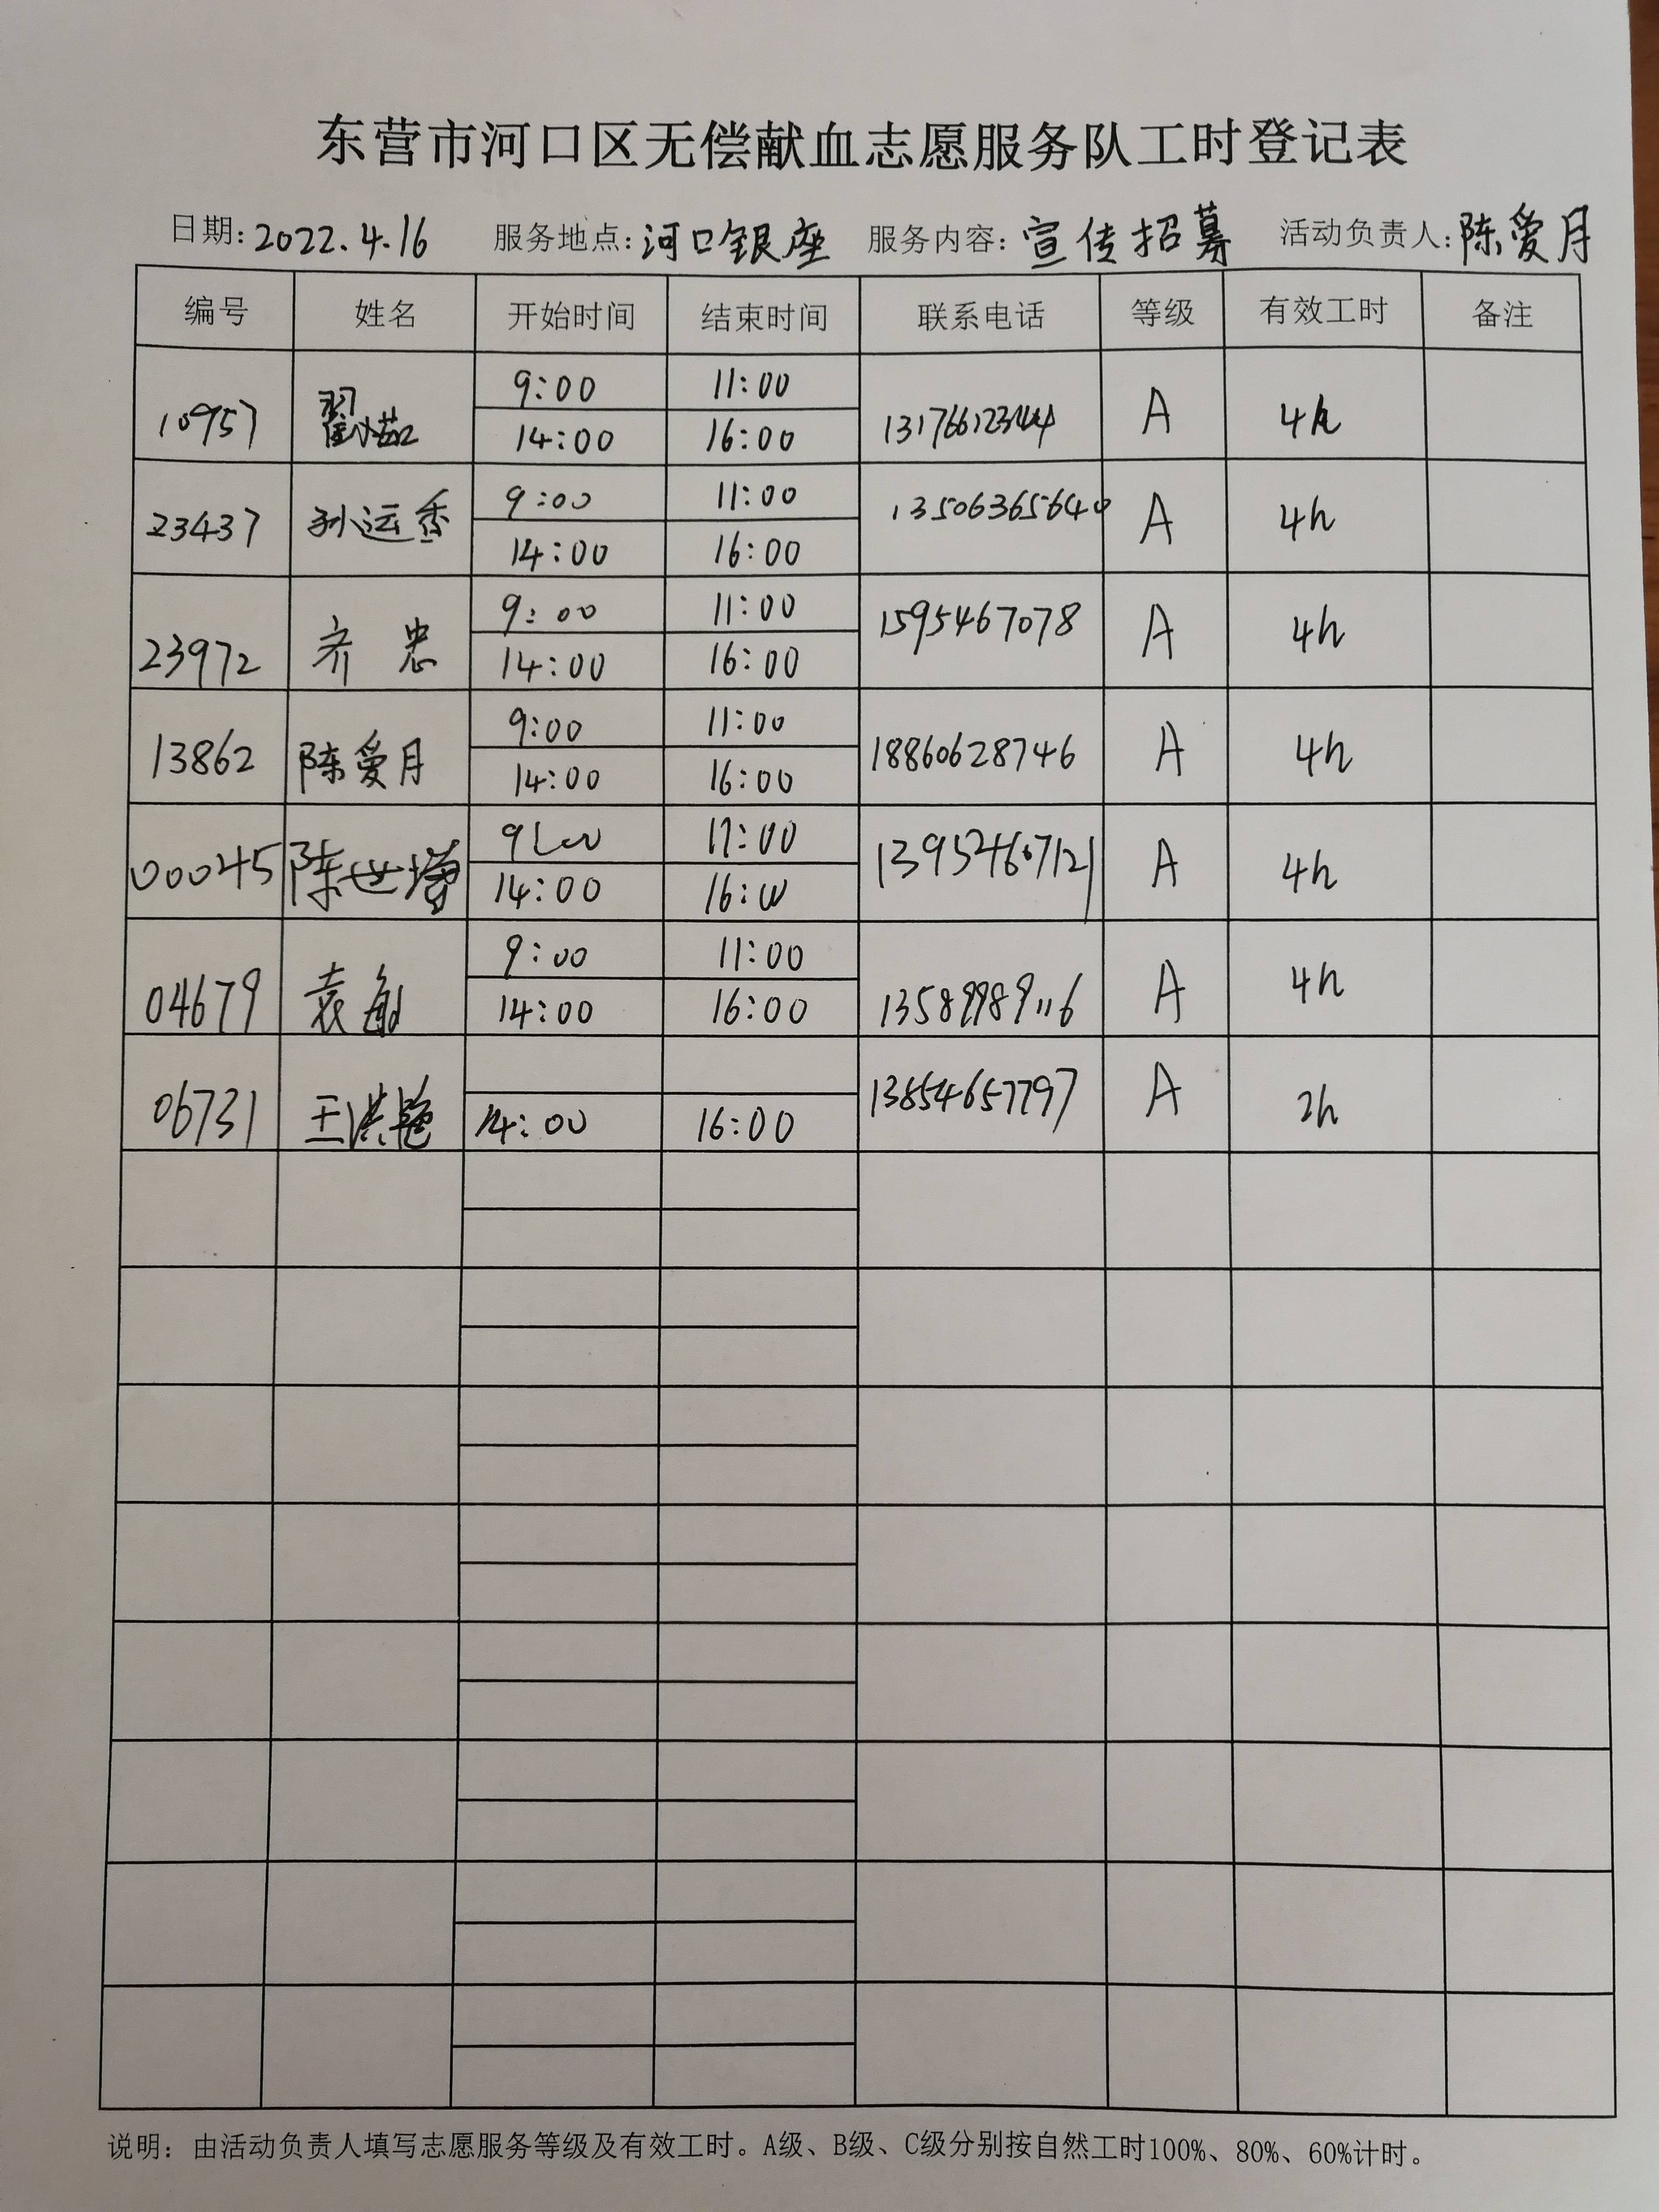 东营市河口区无偿献血志愿服务队工时登记表
日期: 2022.4.16 服务地点: 河口银座 服务内容: 宣传招募 活动负责人: 陈爱月
编号 姓名 开始时间 结束时间 联系电话 等级 有效工时 备注
9:00 11:00
10957 翟 14:00 16:00 A 4h
9:00 11:00
23437 孙运香 14:00 16:00 13506365640 A 4h
9:00 11:00
23972 齐忠 14:00 16:00 1595467078 A 4h
9:00 11:00
13862 陈爱月 14:00 16:00 18860628746 A 4h
9:00 11:00
00045 陈世增 14:00 16:00 13954607121 A 4h
9:00 11:00
04679 袁敏 14:00 16:00 13589989116 A 4h
06731 王洪艳 14:00 16:00 13854657797 A 2h
说明: 由活动负责人填写志愿服务等级及有效工时。A级、B级、C级分别按自然工时100%、80%、60%计时。